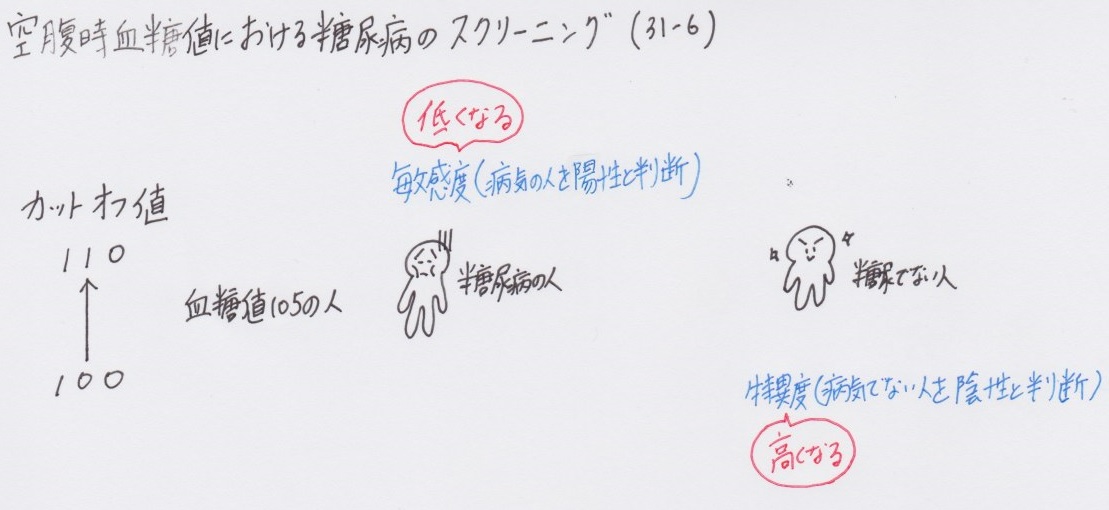 空腹時血糖値における糖尿病のスクリーニング (31-6)
低くなる
敏感度(病気の人を陽性と判断)
カットオフ値
110
血糖値105の人
糖尿病の人
糖尿でない人
100
特異度(病気でない人を陰性と判断)
高くなる